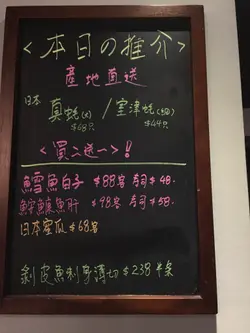 <本日の推介>
產地直送
日本 真蚝(大) / 室津蚝(細)
$68只 $44只
<買二送一>!
鱈魚白子 $88客 壽司$48.
鮟鱇魚肝 $98客 壽司$58.
日本蜜瓜 $68客
剝皮魚刺身薄切 $238半条